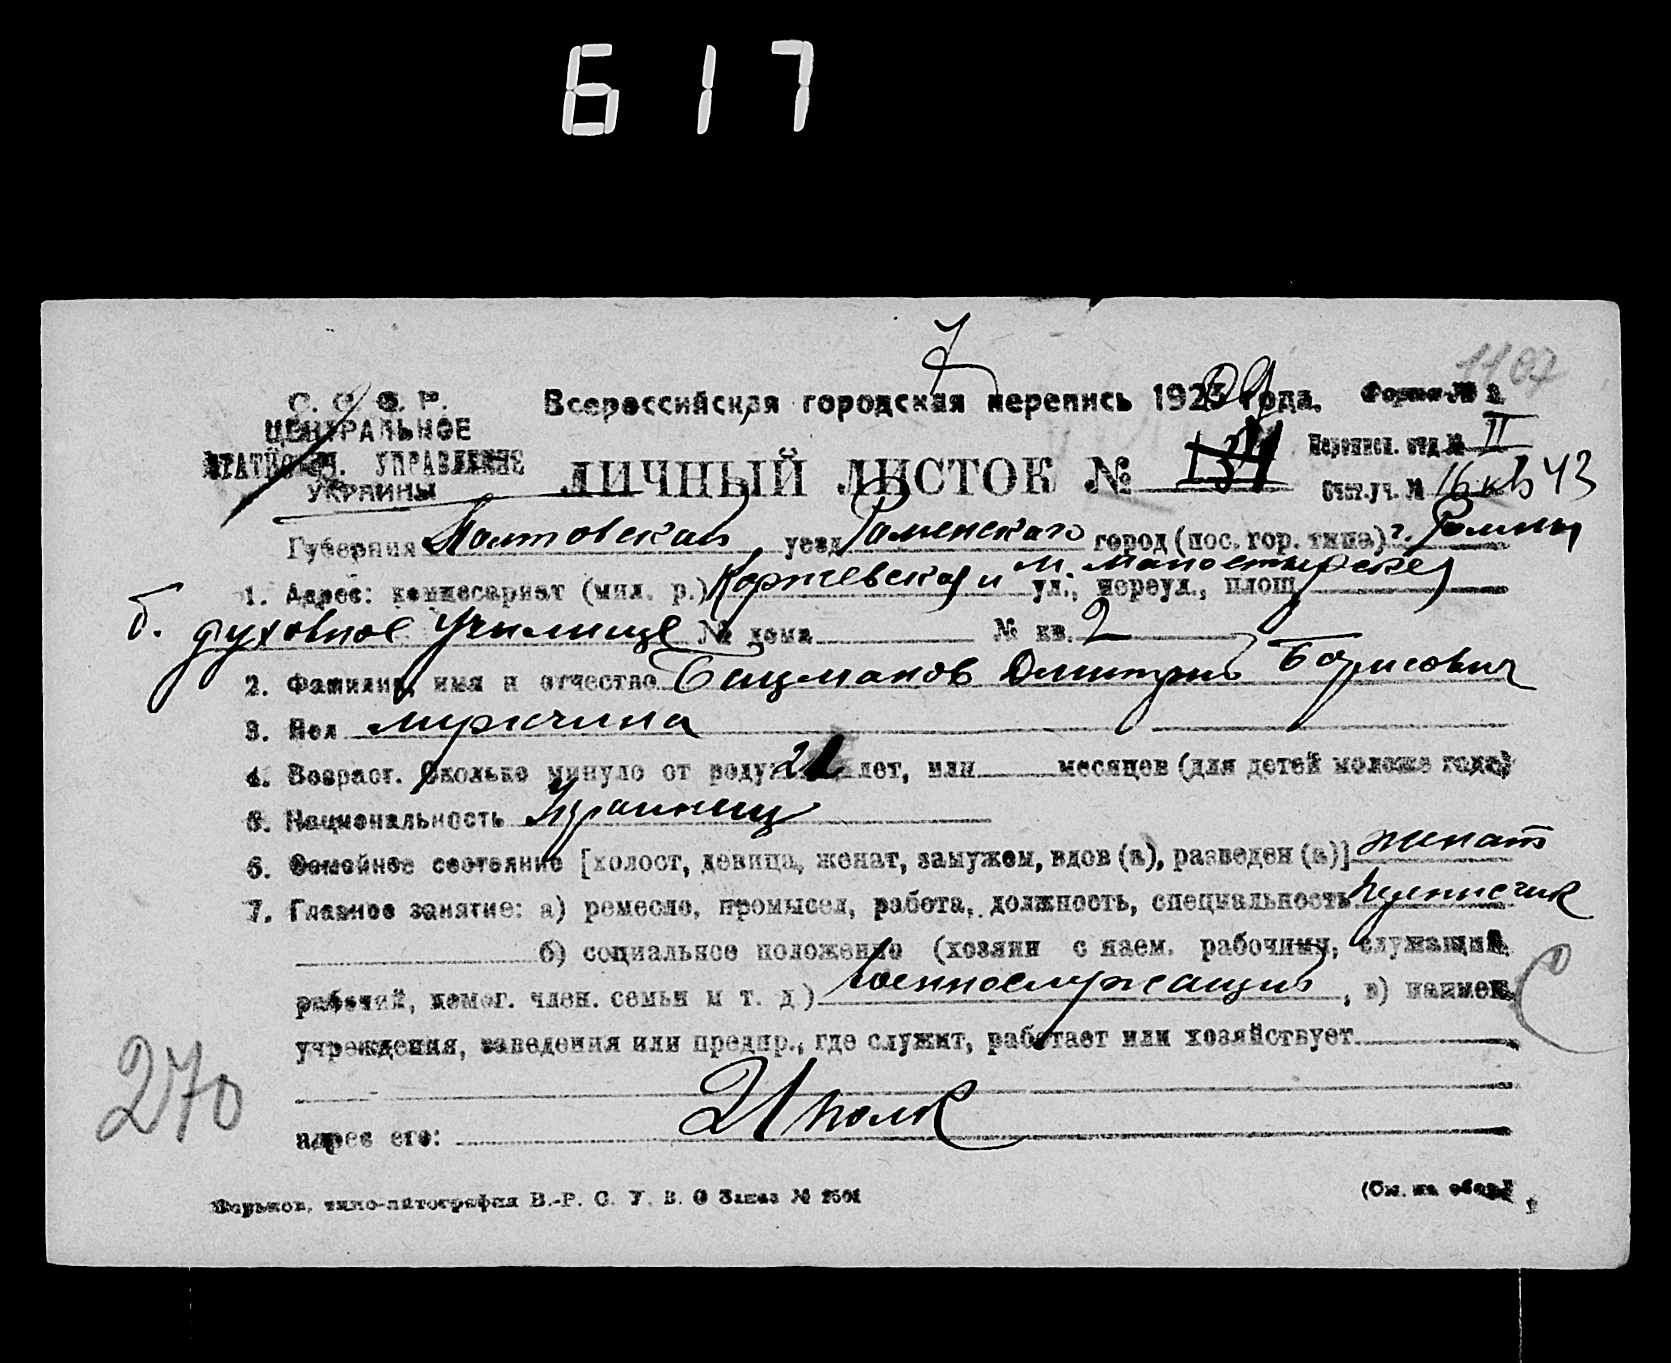 617
7
1107
С. С. С. Р.
ЦЕНТРАЛЬНОЕ
СТАТИСТИЧ. УПРАВЛЕНИЕ
УКРАИНЫ
Всероссийская городская перепись 1923 года.
Форма № 2
Перепис. отд. № II
ЛИЧНЫЙ ЛИСТОК № 134
Счет. уч. № 16 кв 43
Губерния Полтовская, уезд Роменского город (пос. гор. типа) г. Ромны
1. Адрес: комиссариат (мил. р.) Коржевская и М. Манастырская ул., переул., площ.
б. духовное Училище № дома № кв. 2
2. Фамилия, имя и отчество Бацманов Дмитрий Борисович
3. Пол мужчина
4. Возраст. Сколько минуло от роду 21 лет, или месяцев (для детей моложе года)
5. Национальность Украинец
6. Семейное состояние [холост, девица, женат, замужем, вдов (а), разведен (а)] женат
7. Главное занятие: а) ремесло, промысел, работа, должность, специальность
б) социальное положение (хозяин с наем. рабочими, служащий,
рабочий, помог. член. семьи и т. д.) Военнослужащий, в) наимен.
учреждения, заведения или предпр., где служит, работает или хозяйствует
270
адрес его: 21 полк
Харьков, типо-литография В.-Р. С. У. В. О Заказ №
(См. на обор.)